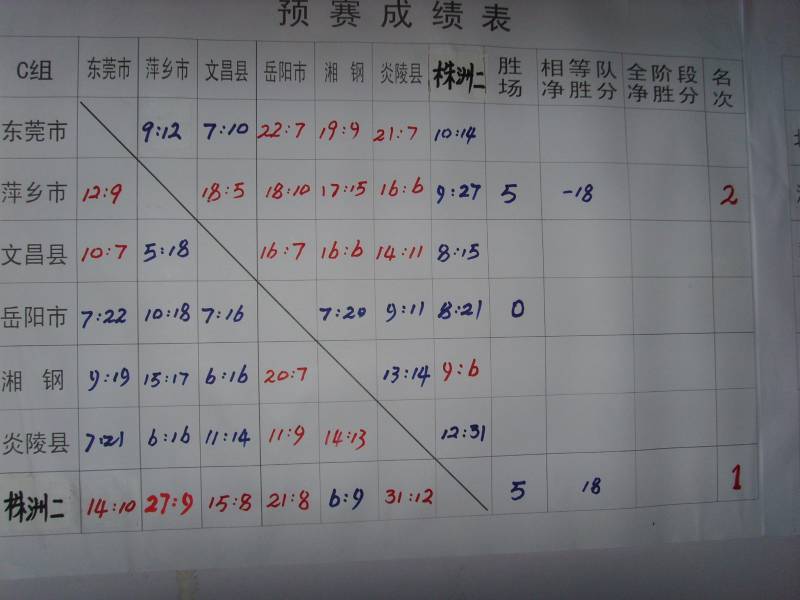 预赛成绩表
C组 东莞市 萍乡市 文昌县 岳阳市 湘钢 炎陵县 株洲二 胜场 相等队净胜分 全阶段净胜分 名次
东莞市 9:12 7:10 22:7 19:9 21:7 10:14
萍乡市 12:9 18:5 18:10 17:15 16:6 9:27 5 -18 2
文昌县 10:7 5:18 16:7 16:6 14:11 8:15
岳阳市 7:22 10:18 7:16 7:20 9:11 8:21 0
湘钢 9:19 15:17 6:16 20:7 13:14 9:6
炎陵县 7:21 6:16 11:14 11:9 14:13 12:31
株洲二 14:10 27:9 15:8 21:8 6:9 31:12 5 18 1